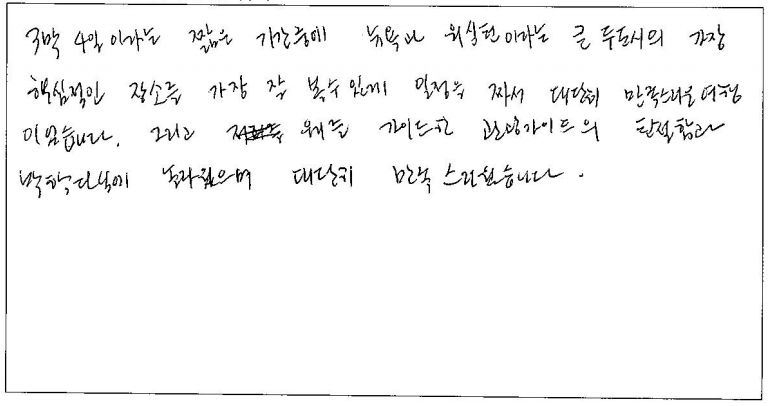 3박 4일이라는 짧은 기간중에 뉴욕과 워싱턴이라는 큰 두도시의 가장
핵심적인 장소를 가장 잘 볼수있게 일정을 짜서 대단히 만족스러운 여행
이었습니다. 그리고 우리를 가이드한 관광가이드의 친절함과
박학다식에 놀라웠으며 대단히 만족스러웠습니다.